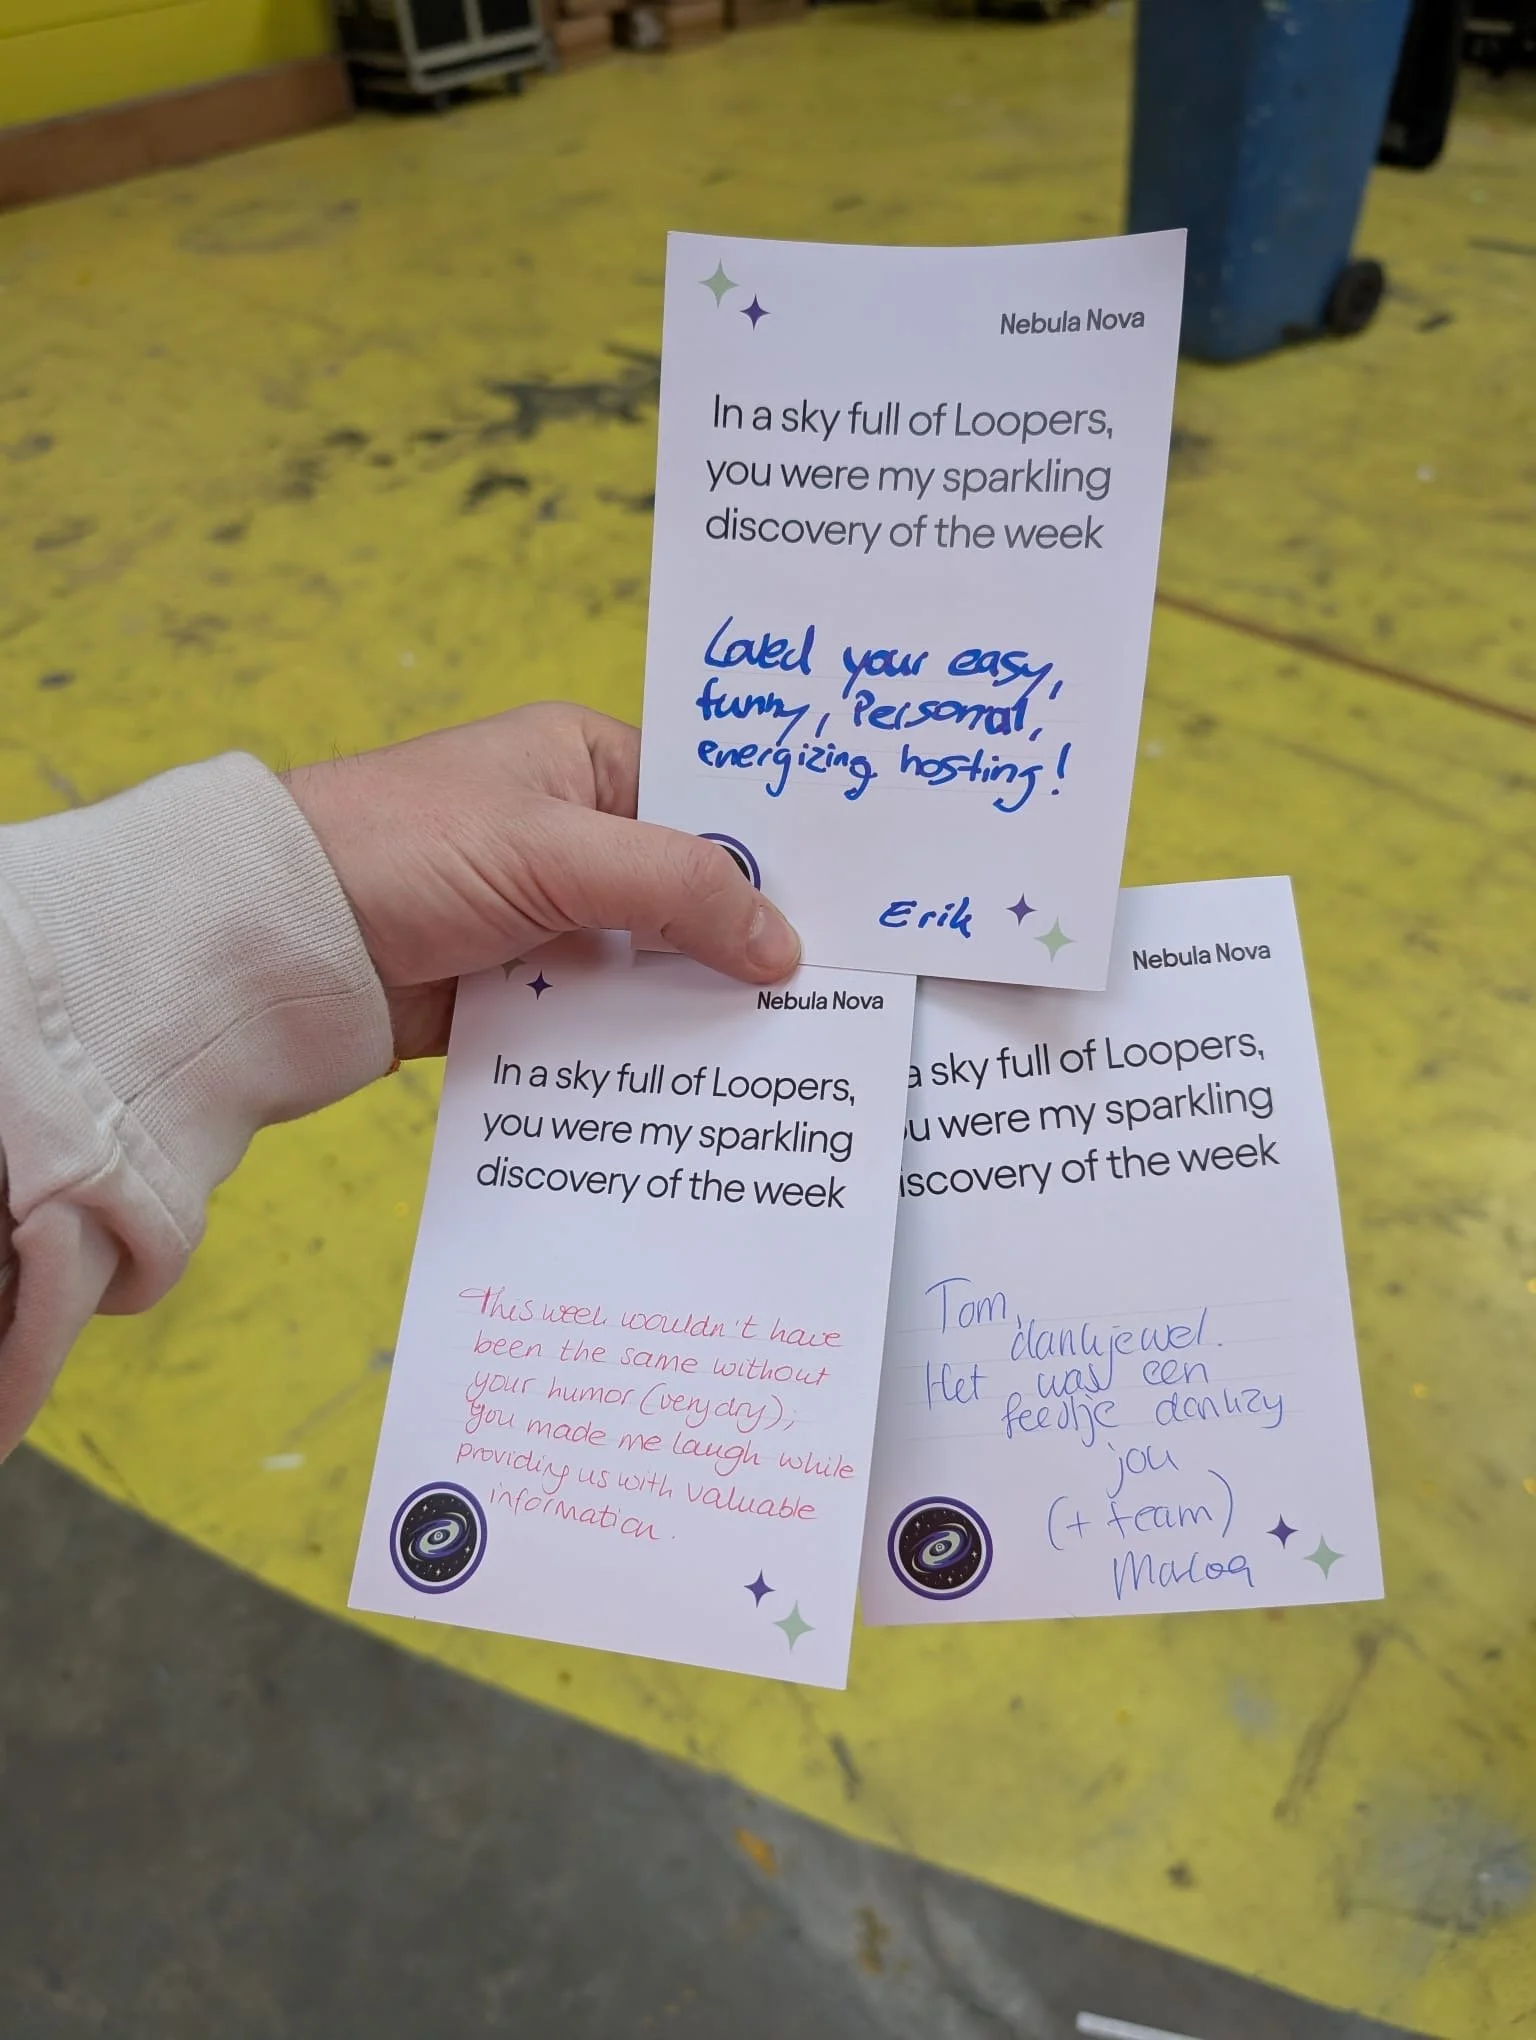 Nebula Nova
In a sky full of Loopers,
you were my sparkling
discovery of the week
Loved your easy,
funny, Personal,
energizing hosting!
Erik
Nebula Nova
In a sky full of Loopers,
you were my sparkling
discovery of the week
This week wouldn't have
been the same without
your humor (very dry);
you made me laugh while
providing us with valuable
information.
Nebula Nova
a sky full of Loopers,
u were my sparkling
iscovery of the week
Tom,
dankjewel.
Het was een
feestje dankzij
jou
(+ team)